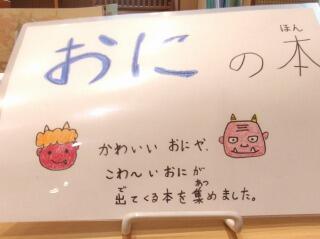 おにの本
ほん
かわいい おにや、
こわ〜い おにが
出てくる本を集めました。
で
あつ